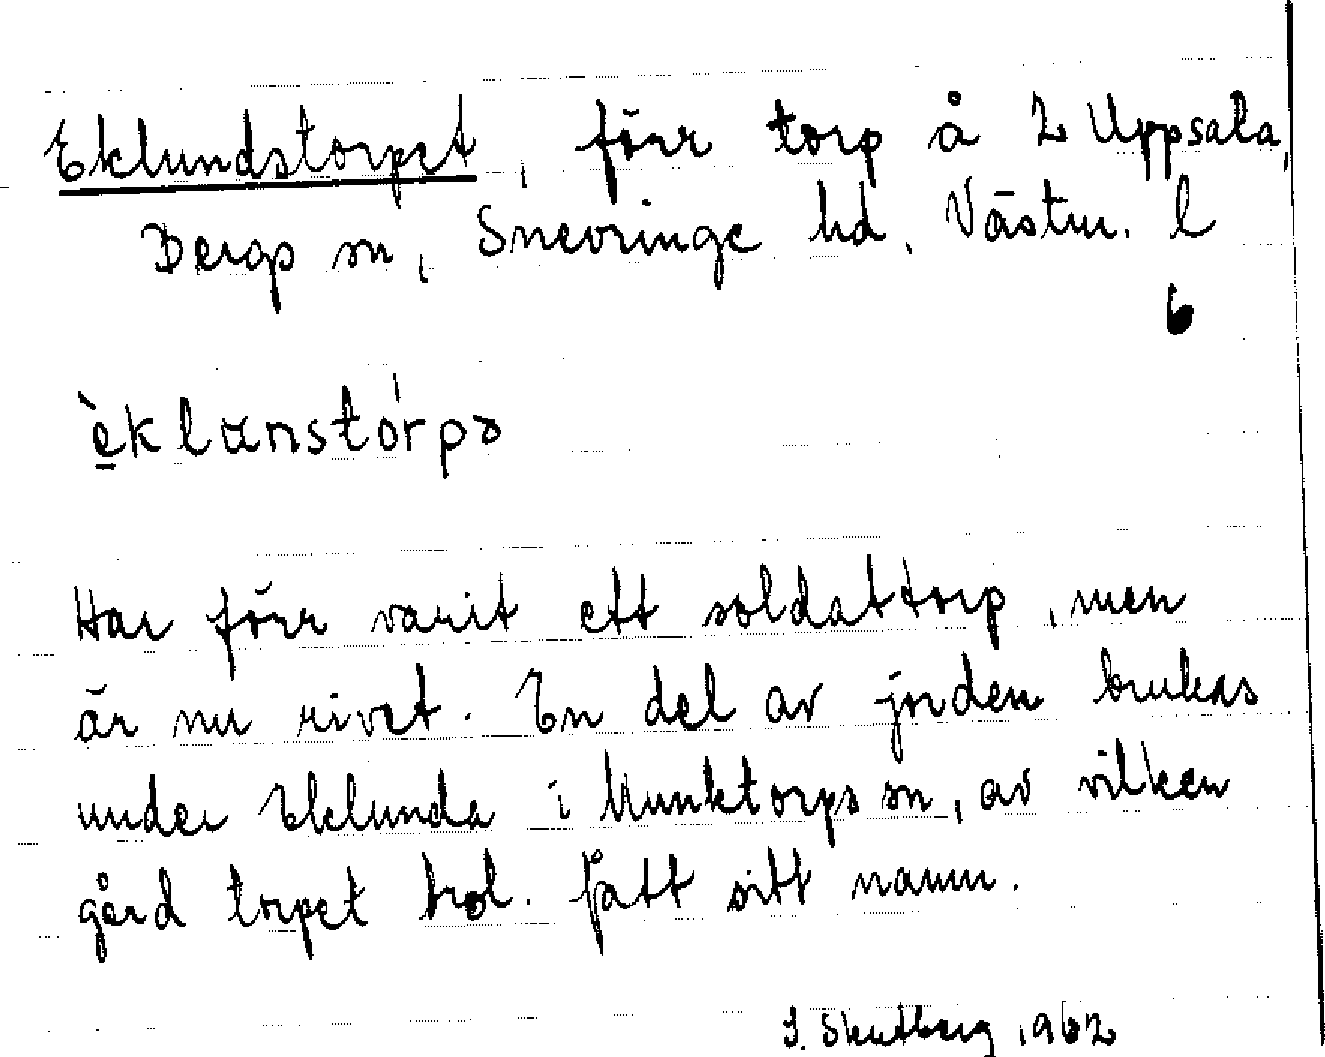 Eklundstorpet, förr torp å L Uppsala,
Bergs sn, Snevringe hd, Västm. l
6
è̱klɯnstɔ́rpə
Har förr varit ett soldattorp, men
är nu rivet. En del av jorden brukas
under Eklunda i Munktorps sn, av vilken
gård torpet trol. fått sitt namn.
1962